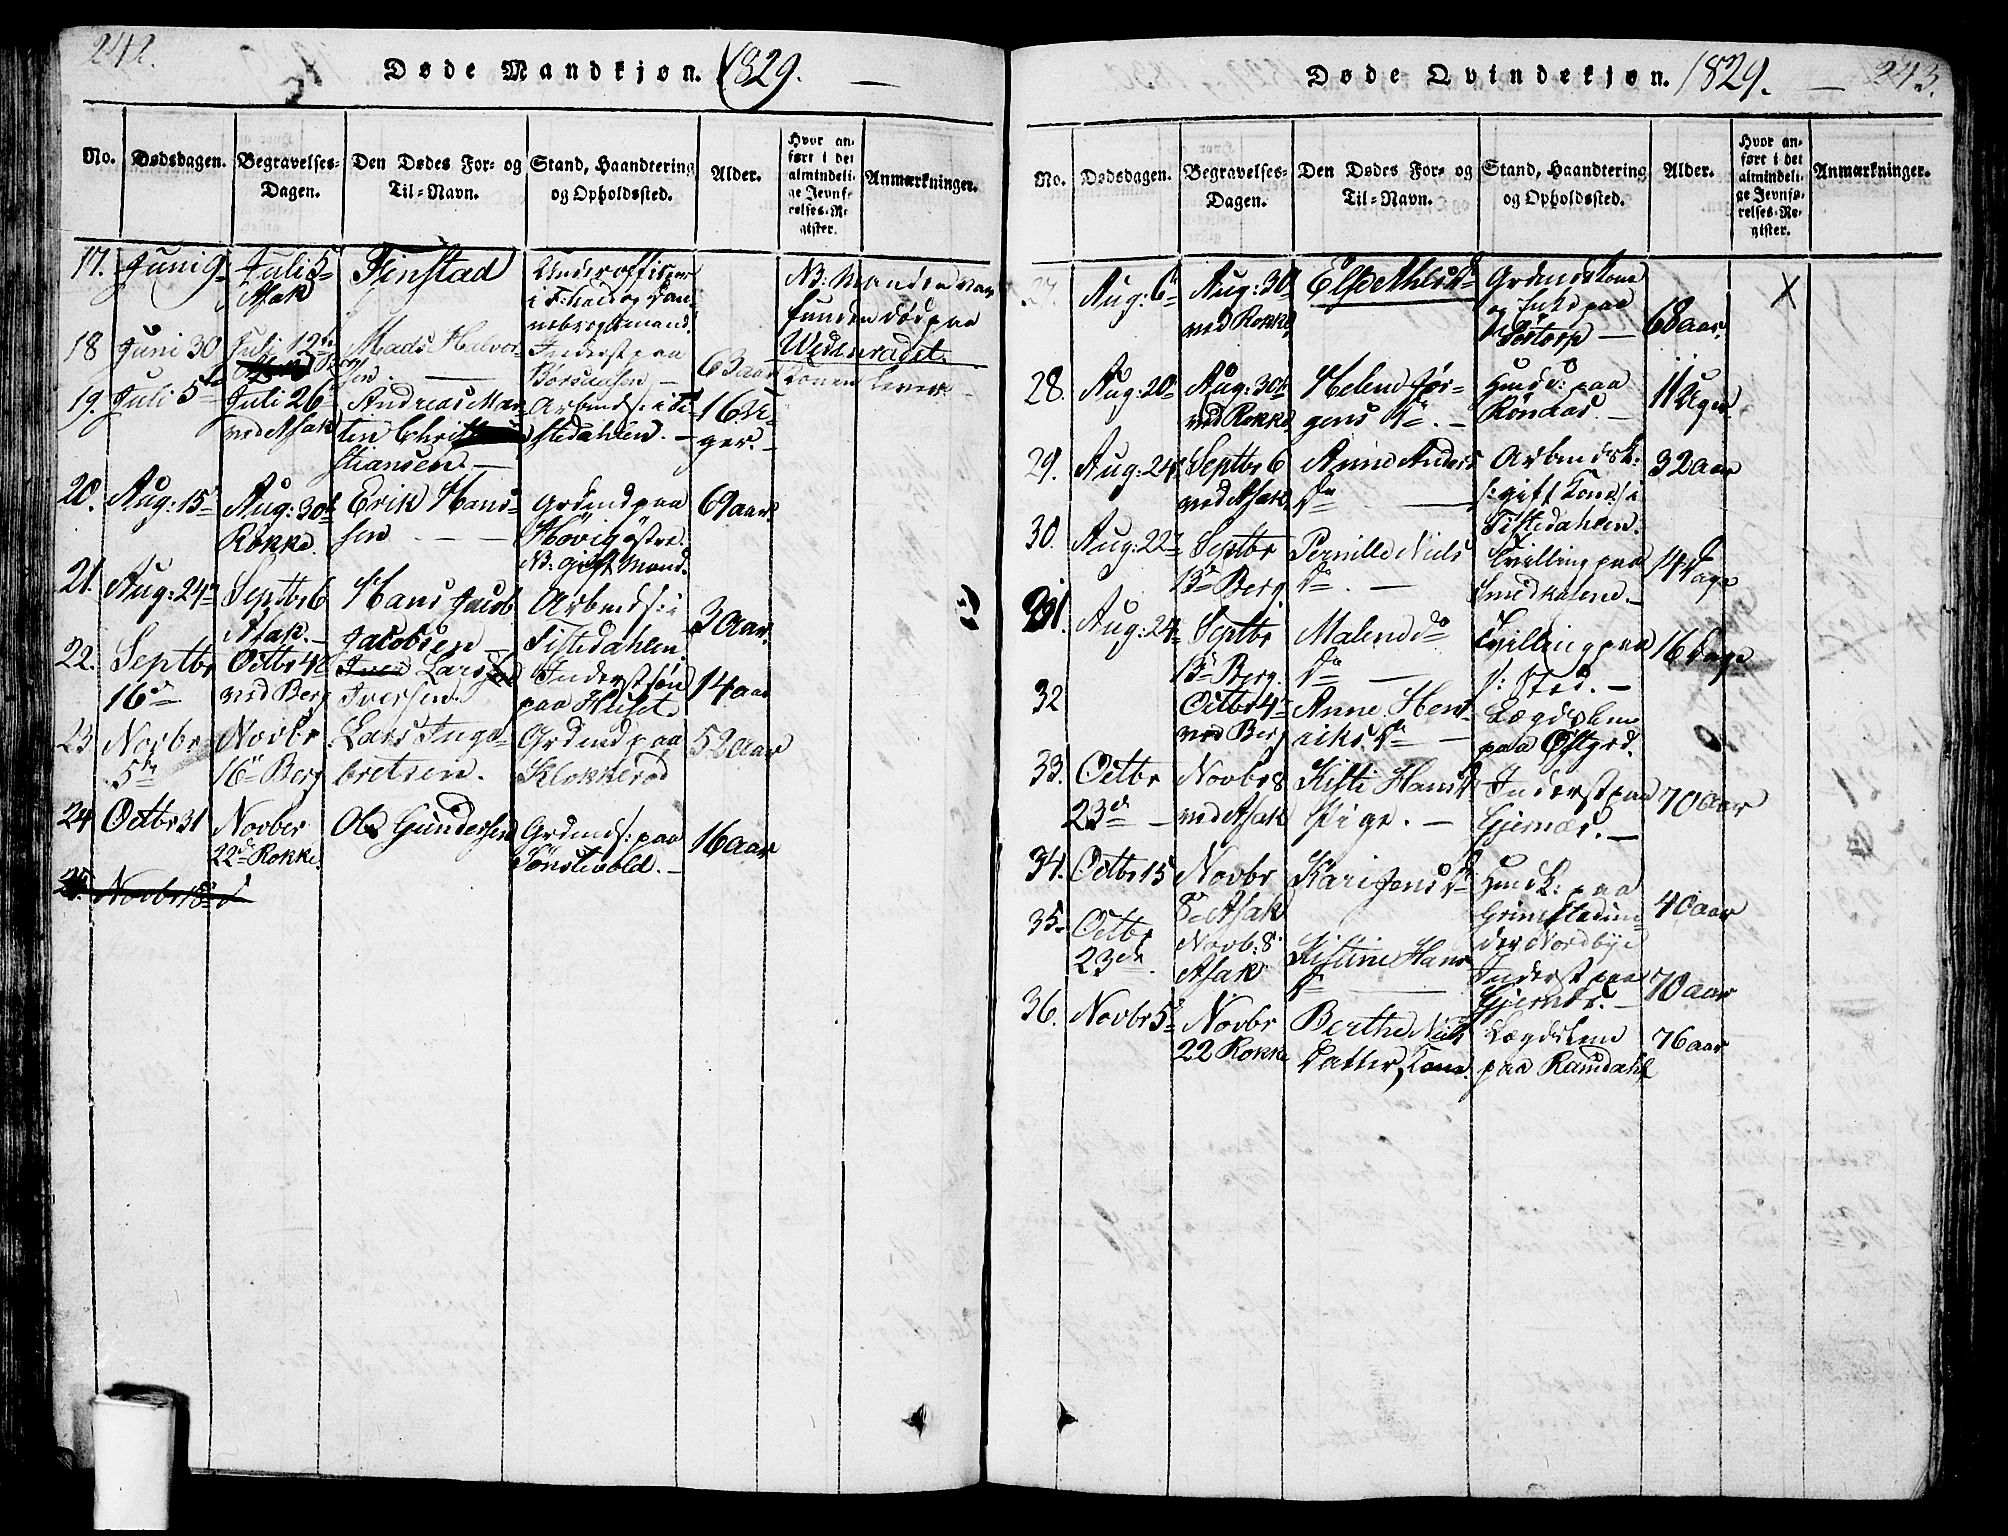 242.
Døde Mandkjøn. 1829.
No. Dødsdagen. Begravelses-Dagen. Den Dødes For- og Til-Navn. Stand, Haandtering og Opholdssted. Alder. Hvor anført i det almindelige Jevnførelses-Register. Anmærkninger.
17. Juni 9 Juli 5 Asak Finstad Underofficeer i F:hald og Dannebrogsmand. NB. Manden var funden død paa
18 Juni 30 Juli 12te Mads Halvorsen Inderst paa 63 aar Konen lever
19. Juli 5te Juli 26 ved Asak Andreas Martin Christiansen Arbmds: i Tistedahlen. 16 Uger
20. Aug: 15 Aug: 30te Rokke. Erik Hanssen Grdmd paa Høvig østre. NB. gift Mand. 69 aar.
21. Aug: 24 Septbr 6 Asak. Hans Jacob Jacobsen Arbmds: i Tistedahlen 3 aar.
22. Septbr 16de Octbr 4 ved Berg Lars Iversen Inderst søn paa Huset 14 aar
23 Novbr 5te Novbr 16 Berg Lars Ingebretsen. Grdmd paa Klokkerød 52 aar
24 Octbr 31 Novber 22de Rokke. Ole Gundersen Grdmds: paa Tønstevold. 16 aar
25. Novbr 15
243.
Døde Qvindekjøn. 1829.
No. Dødsdagen. Begravelses-Dagen. Den Dødes For- og Til-Navn. Stand, Haandtering og Opholdssted. Alder. Hvor anført i det almindelige Jevnførelses-Register. Anmærkninger.
27. Aug: 6 Aug: 30 ved Rokke Else Grdmds Kone og paa 68 aar. X
28. Aug: 20 Aug: 30te ved Rokke Helene Jørgens D Hmds: paa Rønaas. 11 Uger
29. Aug: 24 Septbr 6 ved Asak Anne Anders D Arbmdsk: s: gift Kone i Tistedahlen. 32 aar
30. Aug: 22 Septbr 13 Berg Pernille Niels D Tvilling paa 14 Dage
31. Aug: 24 Septbr 13 Berg. Malene do D Tvilling paa s: Sted. 16 Dage
32 Octbr 4 ved Berg Anne Henriks D Lægdslem paa Østgrd.
33. Octbr 23de Novbr 8 ved Asak Kisti Hans D Pige. Inderst paa Gjernæs. 70 aar
34. Octbr 15 Novbr 8 Asak Kari Jens D Hmdk: paa Grimstad under Nordbye 40 aar
35. Octbr 23de Novb: 8 Asak Kistine Hans D Inderst paa Gjernæs. 70 aar
36. Novbr 5 Novbr 22 Rokke Berthe Niels Datter, Kone. Lægdslem paa Ramdahl 76 aar